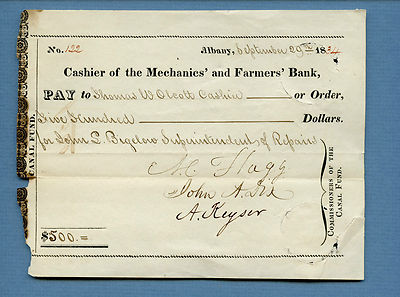 No. 122 Albany, September 29th 1834
Cashier of the Mechanics' and Farmers' Bank,
PAY to Thomas W Olcott Cashier or Order,
Five Hundred Dollars.
for John L. Bigelow Superintendent of Repairs
A. C. Flagg
John A. Dix
A. Keyser
$500.=
CANAL FUND.
COMMISSIONERS OF THE
CANAL FUND.